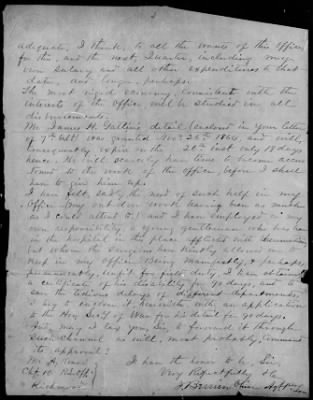 2
adequate, I think, to all the wants of this Office,
for this, and the next, Quarter, including my
own salary and all other expenditures to that
date, and longer, perhaps.
The most rigid economy, consistent with the
interests of the Office will be studied in all
disbursements.
Mr. James H. detail (enclosed in your letter
of 7th ult.) was granted Nov. 26th 1864, and will,
consequently, expire on the 26th inst. only 18 days
hence. He will scarcely have time to become accus
tomed to the work of the office, before I shall
have to give him up.
I have felt, lately, the need of such help in my
Office (my out door work having been as much
as I could attend to,) and I have employed on my
own responsibility, a young gentleman who has been
in the hospital in this place afflicted with
but whom the Surgeon has kindly allowed me to
keep in my office. Being manifestly, & perhaps,
permanently, unfit for field duty, I have obtained
a certificate of his disability for 90 days, and to
save the tedious delays of the different departments,
I beg to enclose it herewith with an application
to the Hon. Sec'y of War for his detail for 90 days.
And may I ask you, Sir, to forward it through
such channel as will, most probably, command
its approval?
I have the honor to be, Sir,
Very Respectfully &c
Mr. A.
Richmond